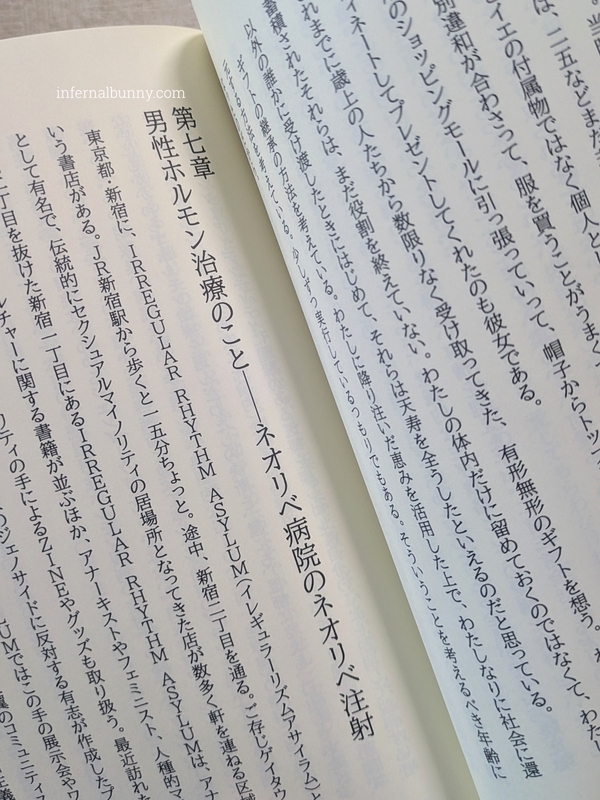 infernalbunny.com
は、二五などまだ
イエの付属物ではなく個人とし
別違和が合わさって、服を買うことがうまく
のショッピングモールに引っ張っていって、帽子からトッ
ィネートしてプレゼントしてくれたのも彼女である。
れまでに歳上の人たちから数限りなく受け取ってきた、有形無形のギフトを想う。
蓄積されたそれらは、まだ役割を終えていない。わたしの体内だけに留めておくのではなくて、わたし
以外の誰かに受け渡したときにはじめて、それらは天寿を全うしたといえるのだと思っている。
ギフトの継承の方法を考えている。わたしに降り注いだ恵みを活用した上で、わたしなりに社会に還
元する方法を考えている。少しずつ実行しているつもりでもある。そういうことを考えるべき年齢に
第七章
男性ホルモン治療のこと――ネオリベ病院のネオリベ注射
東京都・新宿に、IRREGULAR RHYTHM ASYLUM（イレギュラーリズムアサイラム）と
いう書店がある。JR新宿駅から歩くと一五分ちょっと。途中、新宿二丁目を通る。ご存じゲイタウ
として有名で、伝統的にセクシュアルマイノリティの居場所となってきた店が数多く軒を連ねる区域
二丁目を抜けた新宿一丁目にあるIRREGULAR RHYTHM ASYLUMは、アナ
ルチャーに関する書籍が並ぶほか、アナーキストやフェミニスト、人種的マ
リティの手によるZINEやグッズも取り扱う。最近訪れた
のジェノサイドに反対する有志が作成したブ
UMではこの手の展示会やワ
のコミュニティス